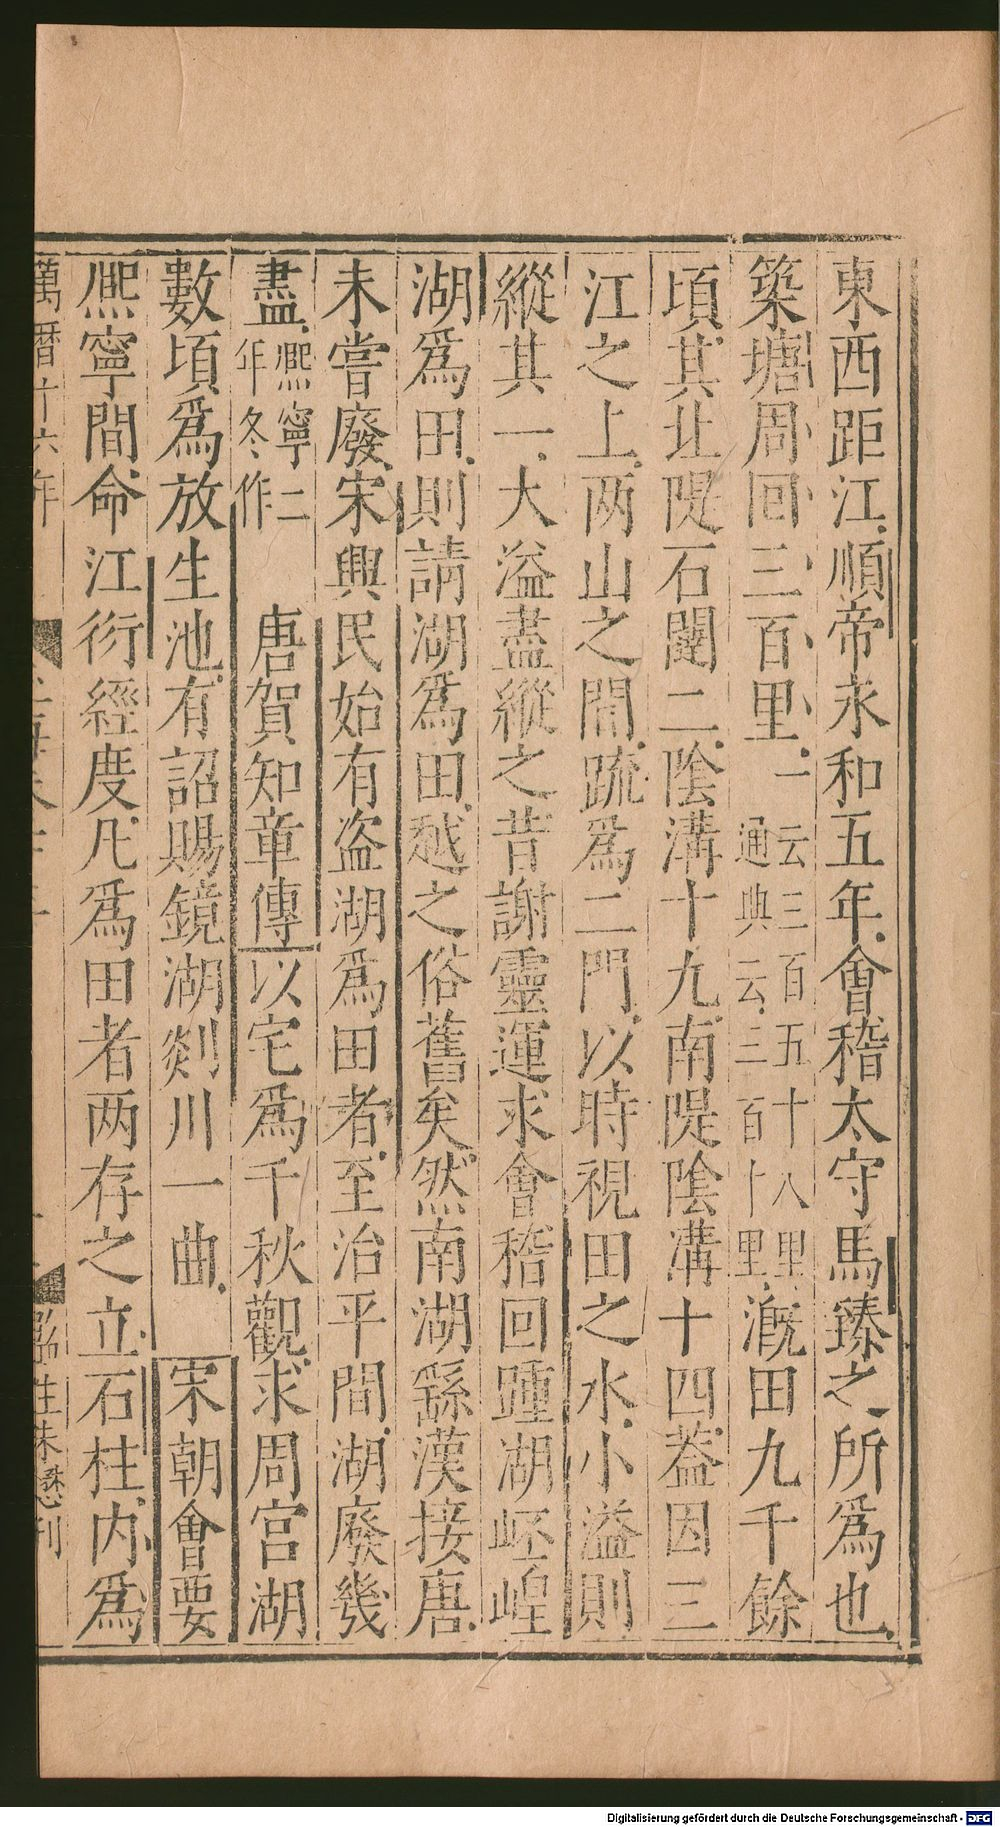 東西距江順帝永和五年會稽太守馬臻之所爲也
築塘周回三百里一云三百五十八里通典云三百十里漑田九千餘
頃其北隄石闥二陰溝十九南隄陰溝十四葢因三
江之上两山之間疏爲二門以時視田之水小溢則
縱其一大溢盡縱之昔謝靈運求會稽回踵湖岯崲
湖爲田則請湖爲田越之俗舊矣然南湖繇漢接唐
未嘗廢宋興民始有盗湖爲田者至治平間湖廢幾
盡熈寧二年冬作 唐賀知章傳以宅爲千秋觀求周宫湖
數頃爲放生池有詔賜鏡湖剡川一曲 宋朝會要
熈寧間命江衍經度凡爲田者两存之立石柱内爲
萬曆十六年
刊
Digitalisierung gefördert durch die Deutsche Forschungsgemeinschaft - DFG